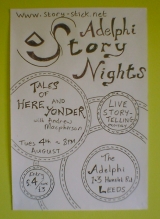 www.story-stick.net
Adelphi
Story
Nights
TALES
OF
HERE AND
YONDER
with Andrew
Macpherson
LIVE
STORY-
TELLING
TUES 4TH 8PM
AUGUST
Entry
£4
The
Adelphi
1-3 Hunslet Rd
LEEDS